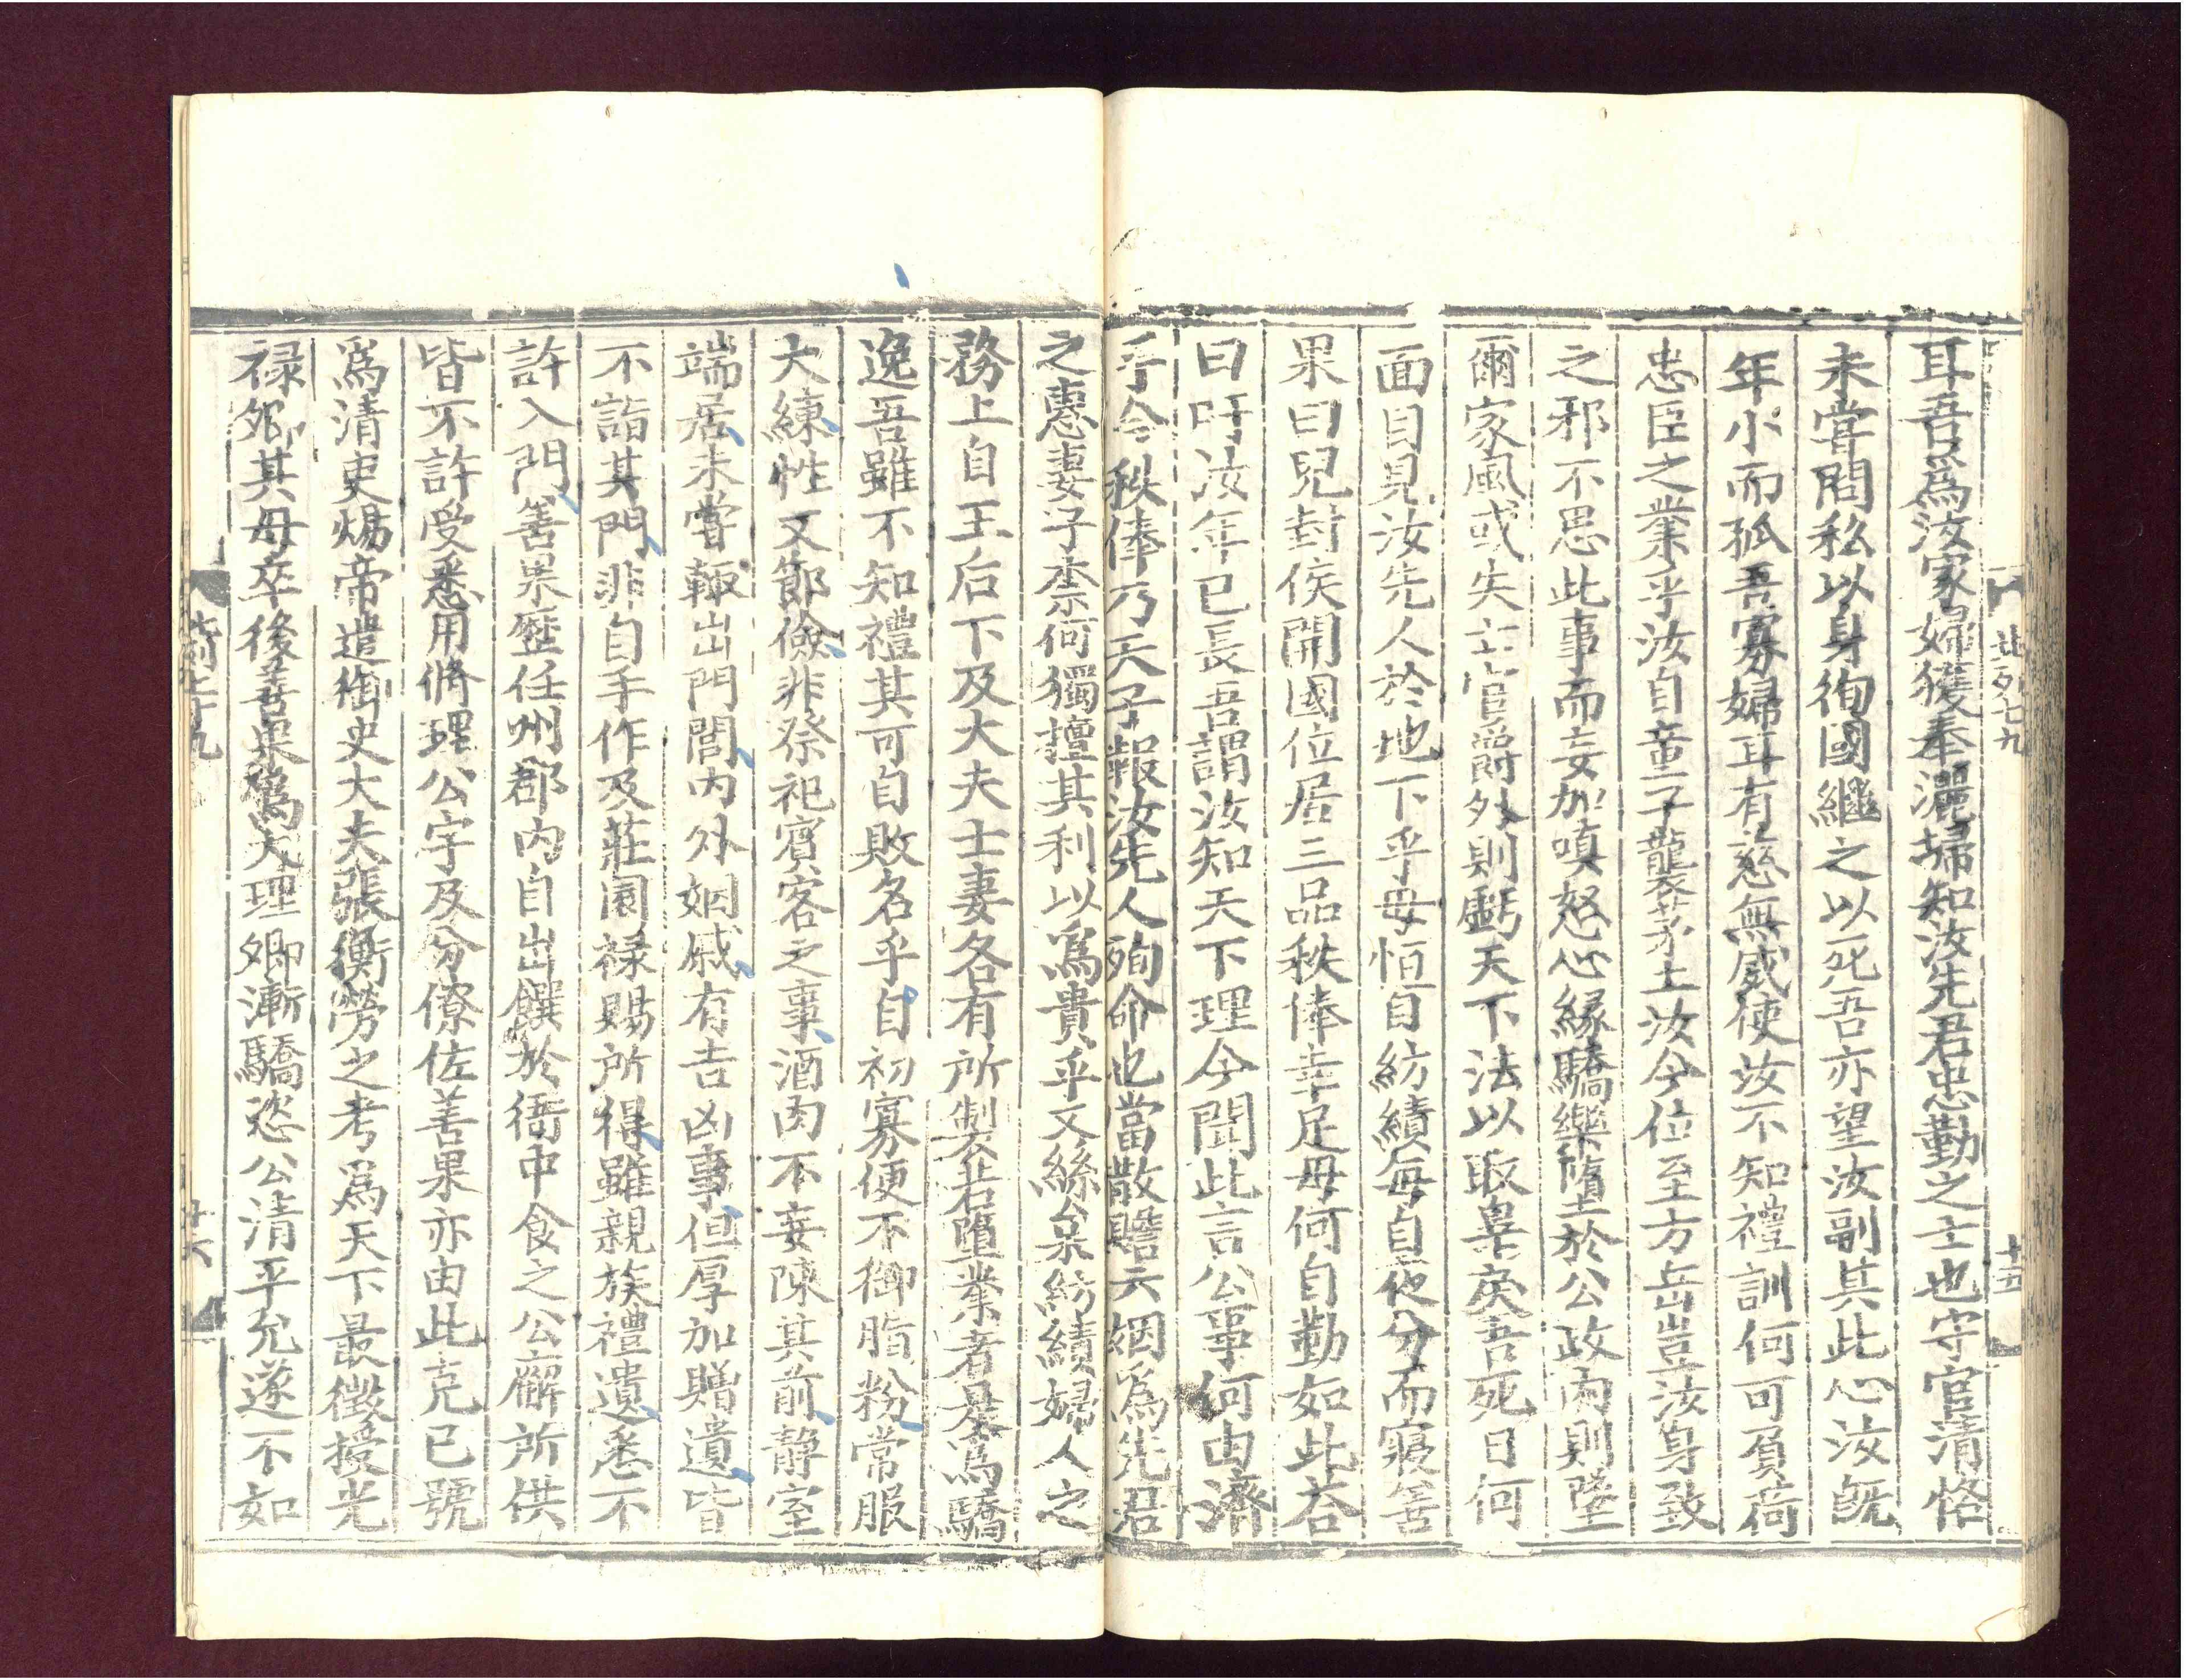 北列七九
十五
耳吾爲汝家婦獲奉灑掃知汝先君忠勤之士也守官清恪
未嘗問私以身徇國繼之以死吾亦望汝副其此心汝旣
年小而孤吾寡婦耳有慈無威使汝不知禮訓何可負荷
忠臣之業乎汝自童子襲茅土汝今位至方岳豈汝身致
之邪不思此事而妄加嗔怒心緣驕樂墮於公政內則墜
爾家風或失亡官爵外則虧天下法以取辠戾吾死日何
面目見汝先人於地下乎母恒自紡績每自夜分而寢善
果曰兒封侯開國位居三品秩俸幸足母何自勤如此荅
曰吁汝年已長吾謂汝知天下理今聞此言公事何由濟
乎今秩俸乃天子報汝先人殉命也當散贍六姻爲先君
之惠妻子柰何獨擅其利以爲貴乎又絲枲紡績婦人之
務上自王后下及大夫士妻各有所製若墮業者是爲驕
逸吾雖不知禮其可自敗名乎自初寡便不御脂粉常服
大練性又節儉非祭祀賓客之事酒肉不妄陳其前靜室
端居未嘗輙出門閤內外姻戚有吉凶事但厚加贈遺皆
不詣其門非自手作及莊園祿賜所得雖親族禮遺悉不
許入門善果歷任州郡內自出饌於衙中食之公廨所供
皆不許受悉用脩理公宇及分僚佐善果亦由此克已號
爲清吏煬帝遣御史大夫張衡勞之考爲天下最徵授光
祿卿其母卒後善果爲大理卿漸驕恣公清平允遂不如
列七十九
十六